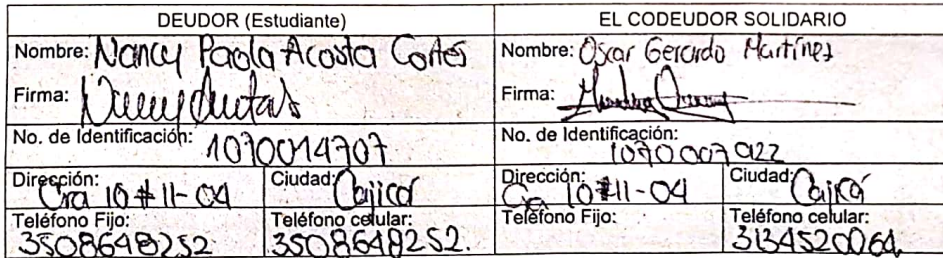 DEUDOR (Estudiante)
EL CODEUDOR SOLIDARIO
Nombre: Nancy Paola Acosta Cortes
Nombre: Oscar Gerardo Martínez
Firma:
Firma:
No. de Identificación: 1070014707
No. de Identificación: 1070007922
Dirección: Cra 10 # 11-04
Ciudad: Cajicá
Dirección: Cra 10 # 11-04
Ciudad: Cajicá
Teléfono Fijo: 3508648252
Teléfono celular: 3508648252.
Teléfono Fijo:
Teléfono celular: 3134520064